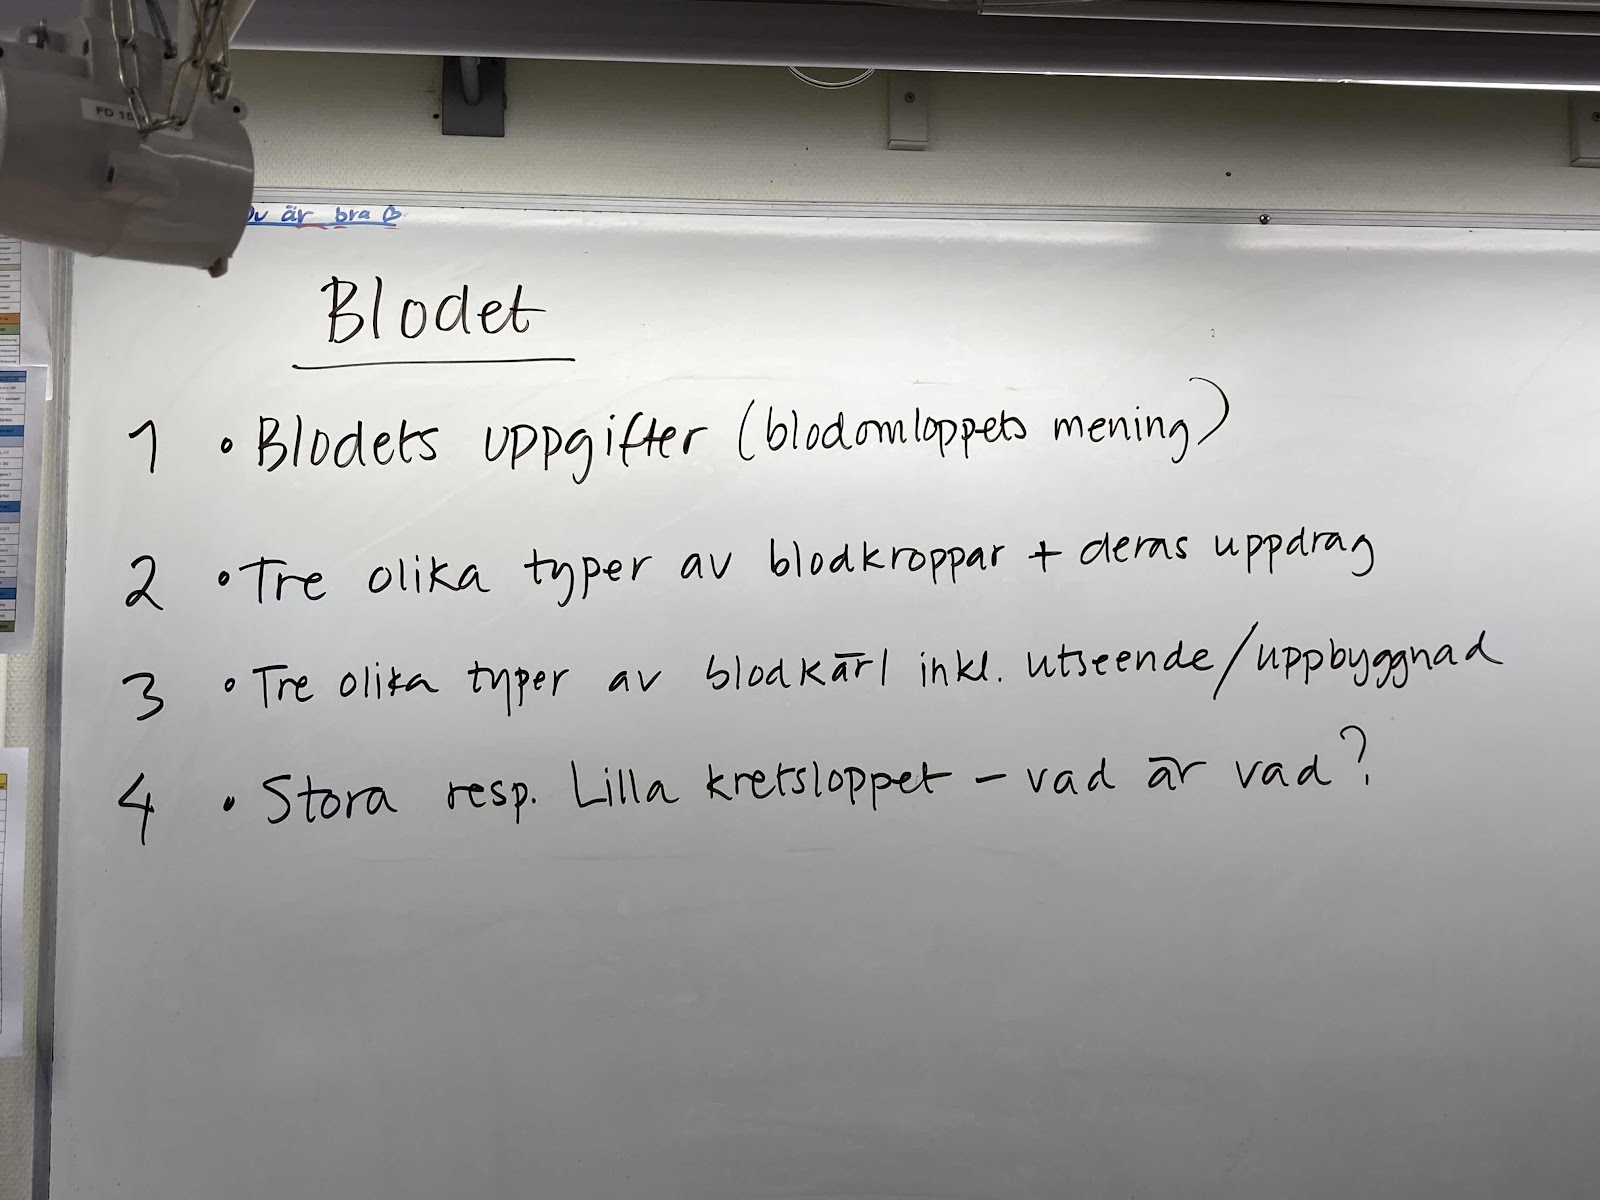 FD 15
är bra
Blodet
1 • Blodets uppgifter (blodomloppets mening)
2 • Tre olika typer av blodkroppar + deras uppdrag
3 • Tre olika typer av blodkärl inkl. utseende/uppbyggnad
4 • Stora resp. Lilla kretsloppet - vad är vad?